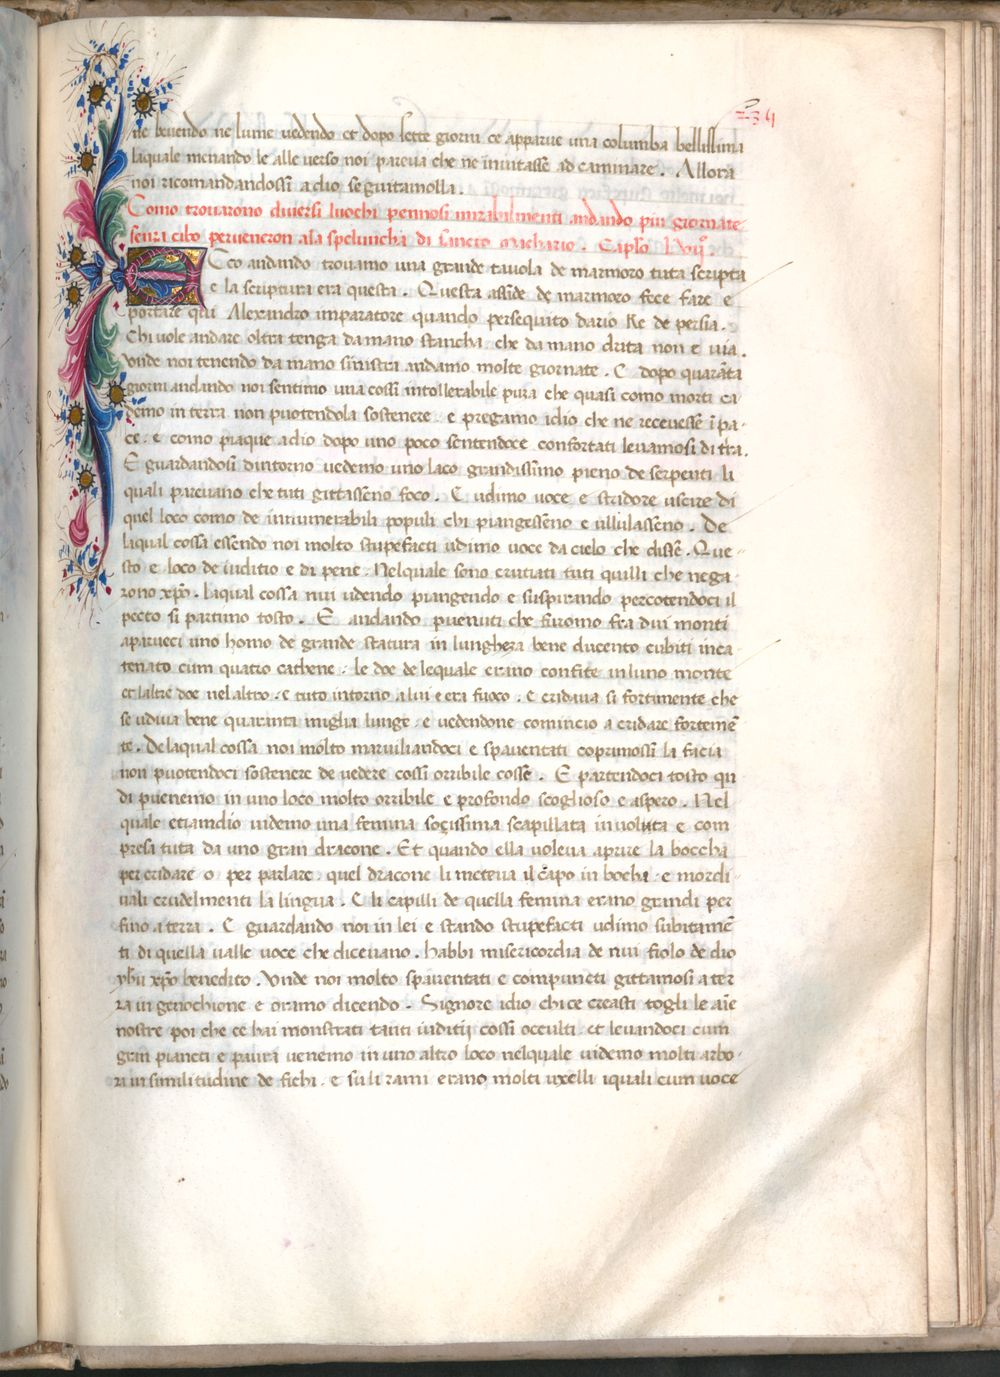 234
ne bevendo ne lume vedendo et dopo sette giorni ce apparue una columba bellissima
laquale menando le alle verso noi pareua che ne inuitasse ad caminare. Allora
noi ricomandandossi a dio seguitamolla.
Como trouarono diuersi luochi pennosi mirabilmenti andando piu giornate
senza cibo peruencron ala speluncha di sancto Machario. Caplo
Cco andando trouamo una grande tauola de marmoro tuta scripta
e la scriptura era questa. Questa asside de marmoro fece fare e
portare qui Alexandro imparatore quando persequito dario Re de persia.
Chi uole andare oltra tenga da mano stancha che da mano drita non e uia.
Vnde noi tenendo da mano sinistra andamo molte giornate. E dopo quarãta
giorni andando noi sentimo una cossi intollerabile pura che quasi como morti ca
demo in terra non puotendola sostenere e pregamo idio che ne receuesse ĩ pa-
ce. e como piaque a dio dopo uno poco sentendoce confortati leuamosi di tra.
E guardandosi dintorno uedemo uno laco grandissimo pieno de serpenti li
quali pareuano che tuti gittasseno foco. E udimo uoce e stridore uscire di
quel loco como de innumerabili populi chi piangesseno e ullulasseno. De
laqual cossa essendo noi molto stupefacti udimo uoce da cielo che disse. Que-
sto e loco de iuditio e di pene. Nelquale sono cruciati tuti quilli che nega
rono xpo. laqual cossa nui udendo piangendo e suspirando percotendoci il
pecto si partimo tosto. E andando puenuti che fussimo fra dui monti
aparueci uno homo de grande statura in lunghezza bene ducento cubiti inca
tenato cum quatro cathene. le doe de lequale erano confite in luno monte
et laltre doe nel altro. e tuto intorno a lui era fuoco. E cridaua si fortimente che
se udiua bene quaranti miglia lunge e uedendone comincio a cridare fortemẽ
te. Delaqual cossa noi molto marauiliandoci e spauentati coprimossi la facia
non puotendoci sostenere de uedere cossi orribile cosse. E partendoci tosto qui
di puenemo in uno loco molto orribile e profondo scoglioso e aspero. Nel
quale etiamdio uidemo una femina soçissima scapillata inuoluta e com
presa tuta da uno gran dracone. Et quando ella uoleua aprire la boccha
per cridare o per parlare quel dracone li meteua il capo in bocha e mordi
uali crudelmenti la lingua. E li capilli de quella femina erano grandi per
fino a terra. E guardando noi in lei e stando stupefacti udimo subitamẽ
ti di quella ualle uoce che diceuano. Habbi misericordia de nui fiolo de dio
yhu xpo benedicto. Vnde noi molto spauentati e compuncti gittamosi a ter
ra in genochione e oramo dicendo. Signore idio chi ce creasti togli le aĩe
nostre poi che ce hai monstrati tanti iuditij cossi occulti. et leuandoci cum
gran piancti e paura uenemo in uno altro loco nelquale uidemo molti arbo-
ra in similitudine de fichi. e su li rami erano molti uxelli i quali cum uoce